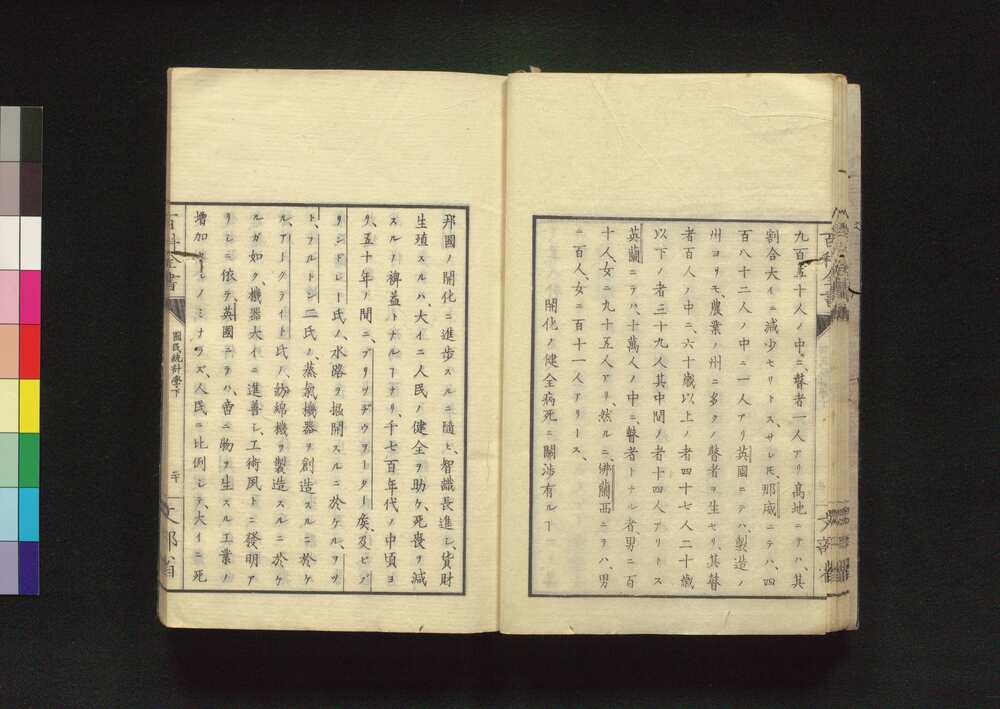 九百五十人ノ中ニ、瞽者一人アリ高地ニテハ、其
割合大イニ減少セリトス、サレ𪜈、那威ニテハ、四
百八十二人ノ中ニ一人アリ英国ニテハ、製造ノ
州ヨリモ、農業ノ州ニ多クノ瞽者ヲ生セリ、其瞽
者百人ノ中ニ、六十歳以上ノ者四十七人二十歳
以下ノ者三十九人其中間ノ者十四人アリトス
英蘭ニテハ、十萬人ノ中ニ、瞽者トナル者、男ニ百
十人、女ニ九十五人アリ、然ルニ、佛蘭西ニテハ、男
ニ百人、女ニ百十一人アリース、
開化ノ健全病死ニ關渉有ルー
邦國ノ開化ニ進歩スルニ隨ヒ、智識長進シ、貨財
生殖スルハ、大イニ人民ノ健全ヲ助ケ、死喪ヲ減
スルノ裨益トナルーナリ、千七百年代ノ中頃ヨ
リ、五十年ノ間ニ、ブリッヂウヲーター矦、及ビブ
リンドレー氏ノ、水路ヲ掘開スルニ於ケル、ヲッ
ト、ヲルトン二氏ノ、蒸氣機器ヲ創造スルニ於ケ
ル、アークライト氏ノ、紡綿機ヲ製造スルニ於ケ
ルガ如ク、機器大イニ進善シ、工術風トニ發明ア
リシニ依テ、英國ニテハ、啻ニ物ヲ生スル工業ノ
増加セルノミナラズ、人民ニ比例シテ、大イニ死
百科全書
國民統計學下
文部省